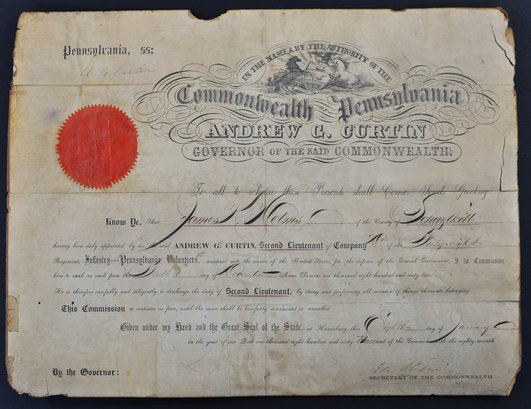 Pennsylvania, ss:
A. G. Curtin
IN THE NAME & BY THE AUTHORITY OF THE
Commonwealth of Pennsylvania
ANDREW G. CURTIN
GOVERNOR OF THE SAID COMMONWEALTH.
To all to whom these Presents shall Come, Sends Greeting
Know Ye, That James Holmes of the County of Schuylkill
having been duly appointed by the said ANDREW G. CURTIN, Second Lieutenant of Company of the Forty-eighth
Regiment, Infantry Pennsylvania Volunteers mustered into the service of the United States, for the defence of the General Government, I do Commission
him to rank as such from the day of Anno Domini one thousand eight hundred and sixty two
He is therefore carefully and diligently to discharge the duty of Second Lieutenant, by doing and performing all manner of things thereunto belonging
This Commission to continue in force, until the same shall be lawfully determined or annulled
Given under my Hand and the Great Seal of the State, at Harrisburg, this day of January
in the year of our Lord one thousand eight hundred and sixty and of the Commonwealth the eighty seventh
By the Governor:
SECRETARY OF THE COMMONWEALTH.